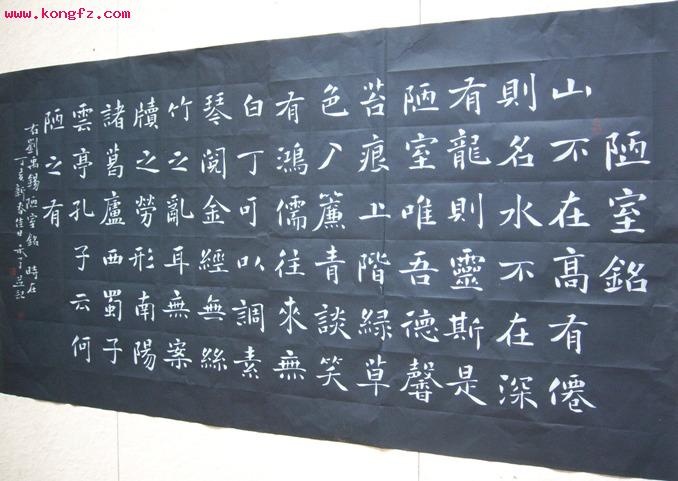 www.kongfz.com
陋室銘
山不在高有僊
則名水不在深
有龍則靈斯是
陋室唯吾德馨
苔痕上階緑草
色入簾青談笑
有鴻儒往來無
白丁可以調素
琴閲金經無絲
竹之亂耳無案
牘之勞形南陽
諸葛廬西蜀子
雲亭孔子云何
陋之有
右劉禹錫陋室銘 時在
丁亥新春佳日